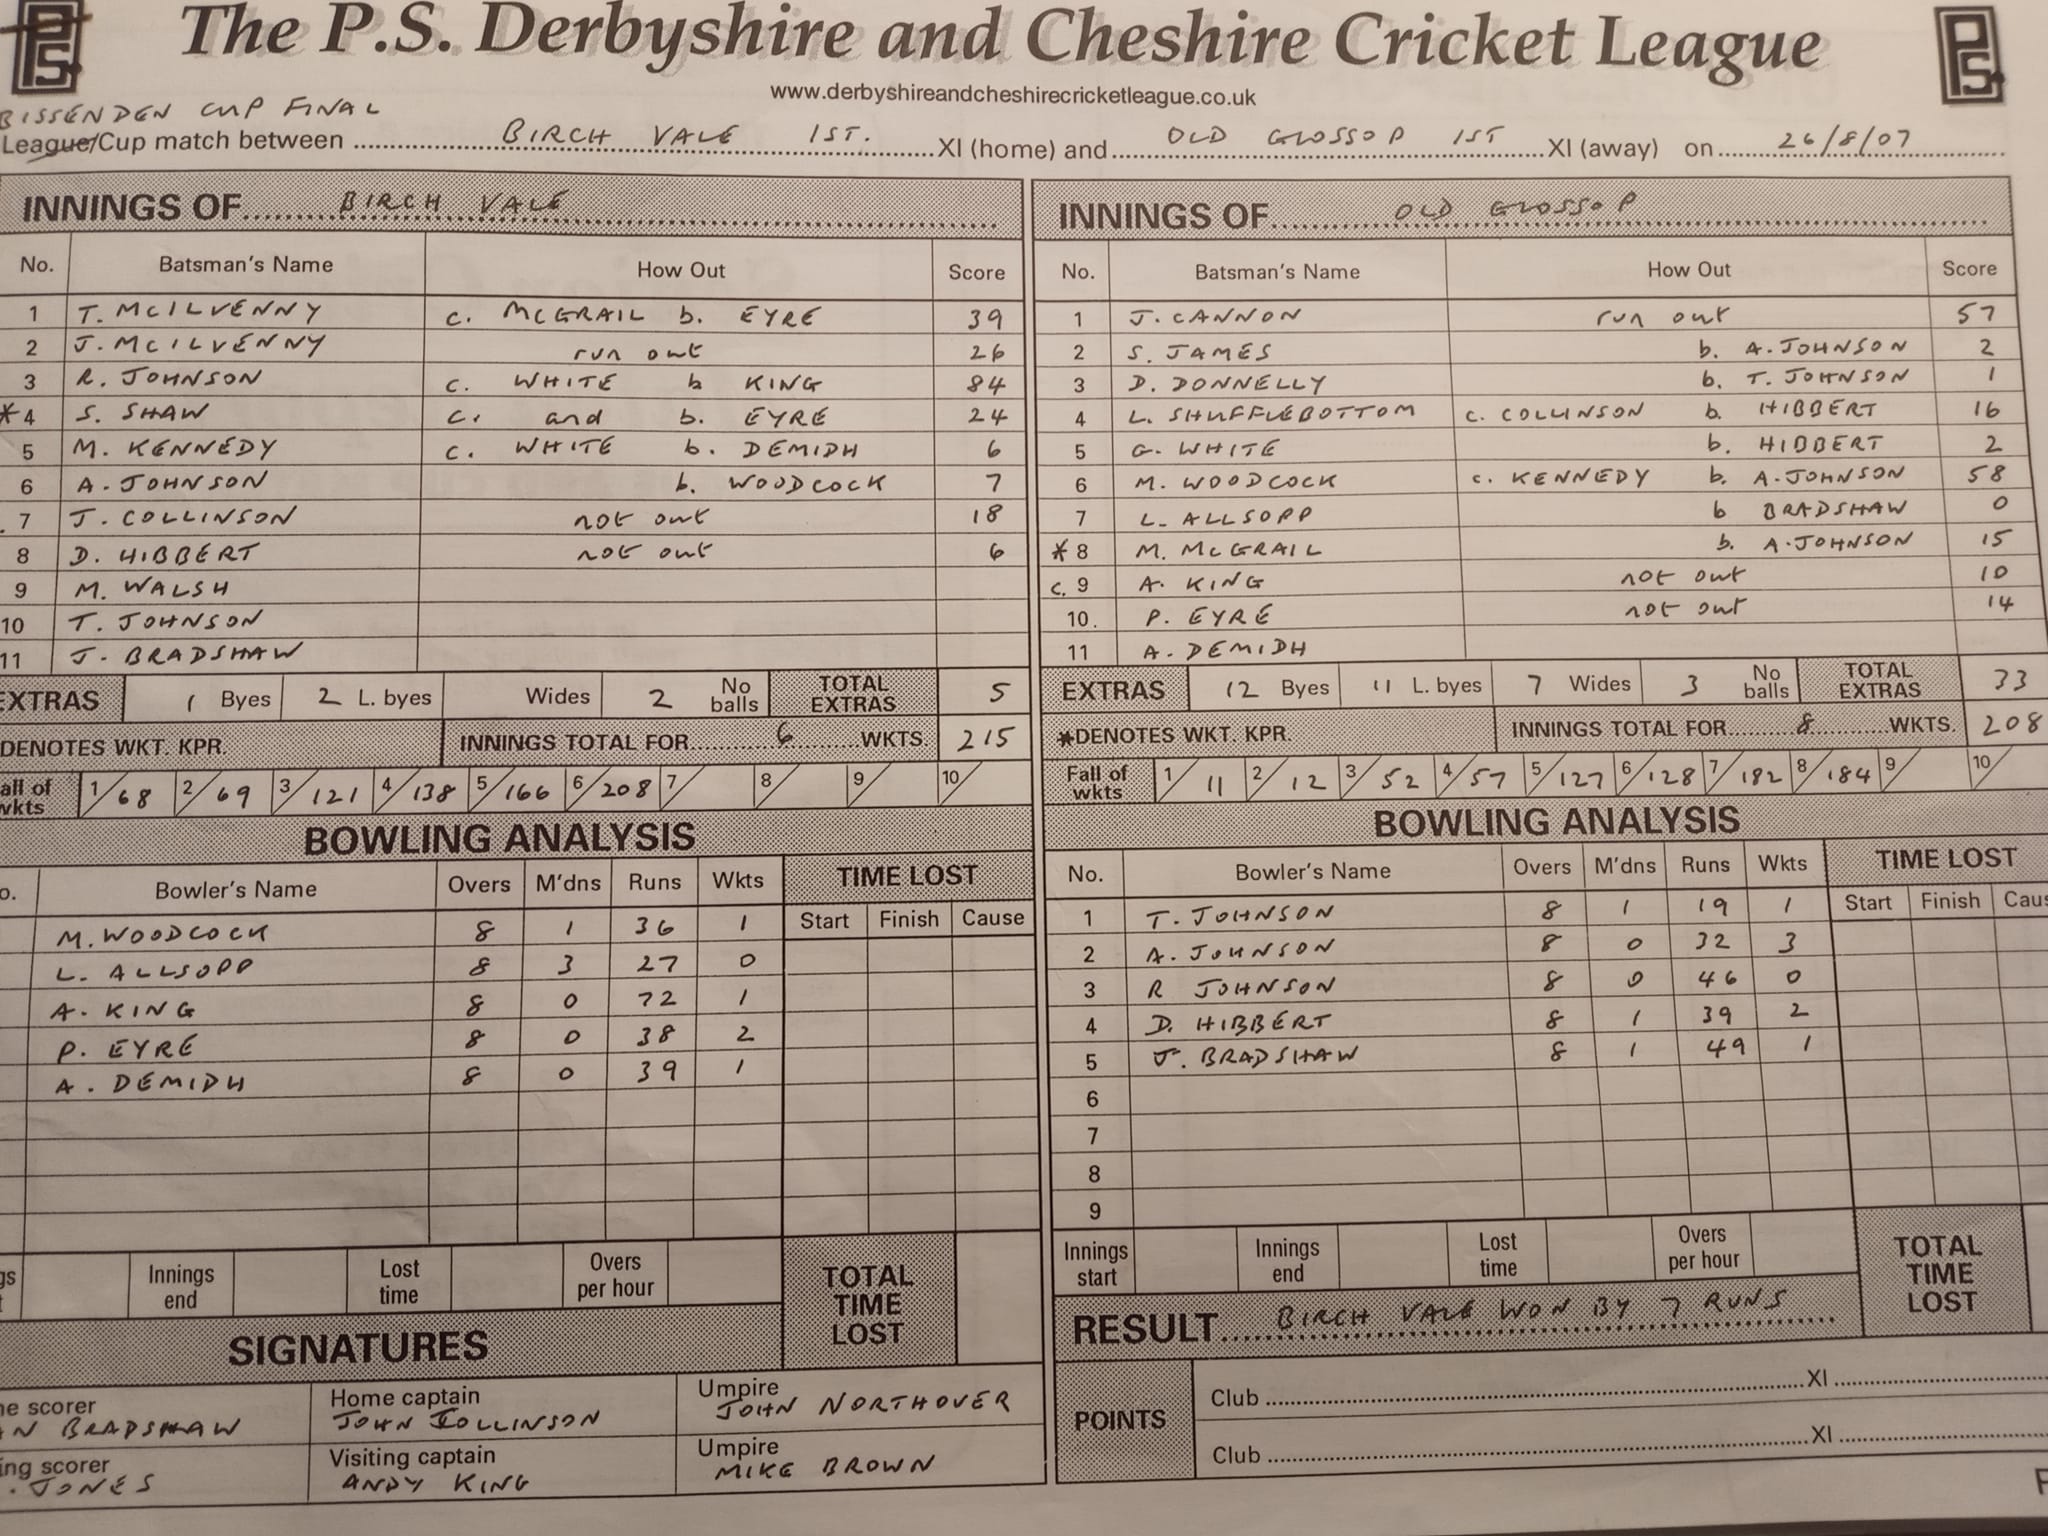 The P.S. Derbyshire and Cheshire Cricket League
www.derbyshireandcheshirecricketleague.co.uk
BISSENDEN CUP FINAL
League/Cup match between BIRCH VALE 1ST. XI (home) and OLD GLOSSOP 1ST XI (away) on 26/8/07
INNINGS OF BIRCH VALE
No. Batsman's Name How Out Score
1 T. MCILVENNY c. MCGRAIL b. EYRE 39
2 J. MCILVENNY run out 26
3 R. JOHNSON c. WHITE b KING 84
*4 S. SHAW c. and b. EYRE 24
5 M. KENNEDY c. WHITE b. DEMIDH 6
6 A. JOHNSON b. WOODCOCK 7
7 J. COLLINSON not out 18
8 D. HIBBERT not out 6
9 M. WALSH
10 T. JOHNSON
11 J. BRADSHAW
EXTRAS 1 Byes 2 L. byes Wides 2 No balls TOTAL EXTRAS 5
DENOTES WKT. KPR. INNINGS TOTAL FOR 6 WKTS. 215
all of wkts 1/68 2/69 3/121 4/138 5/166 6/208 7/ 8/ 9/ 10/
BOWLING ANALYSIS
o. Bowler's Name Overs M'dns Runs Wkts TIME LOST
Start Finish Cause
M. WOODCOCK 8 1 36 1
L. ALLSOPP 8 3 27 0
A. KING 8 0 72 1
P. EYRE 8 0 38 2
A. DEMIDH 8 0 39 1
Innings end Lost time Overs per hour TOTAL TIME LOST
SIGNATURES
ne scorer Home captain Umpire
AN BRADSHAW JOHN COLLINSON JOHN NORTHOVER
ing scorer Visiting captain Umpire
. JONES ANDY KING MIKE BROWN
INNINGS OF OLD GLOSSOP
No. Batsman's Name How Out Score
1 J. CANNON run out 57
2 S. JAMES b. A. JOHNSON 2
3 D. DONNELLY b. T. JOHNSON 1
4 L. SHUFFLEBOTTOM c. COLLINSON b. HIBBERT 16
5 G. WHITE b. HIBBERT 2
6 M. WOODCOCK c. KENNEDY b. A. JOHNSON 58
7 L. ALLSOPP b BRADSHAW 0
*8 M. MCGRAIL b. A. JOHNSON 15
c. 9 A. KING not out 10
10. P. EYRE not out 14
11 A. DEMIDH
EXTRAS 12 Byes 11 L. byes 7 Wides 3 No balls TOTAL EXTRAS 33
*DENOTES WKT. KPR. INNINGS TOTAL FOR 8 WKTS. 208
Fall of wkts 1/11 2/12 3/52 4/57 5/127 6/128 7/182 8/184 9/ 10/
BOWLING ANALYSIS
No. Bowler's Name Overs M'dns Runs Wkts TIME LOST
Start Finish Caus
1 T. JOHNSON 8 1 19 1
2 A. JOHNSON 8 0 32 3
3 R JOHNSON 8 0 46 0
4 D. HIBBERT 8 1 39 2
5 J. BRADSHAW 8 1 49 1
6
7
8
9
Innings start Innings end Lost time Overs per hour TOTAL TIME LOST
RESULT BIRCH VALE WON BY 7 RUNS
POINTS
Club XI
Club XI